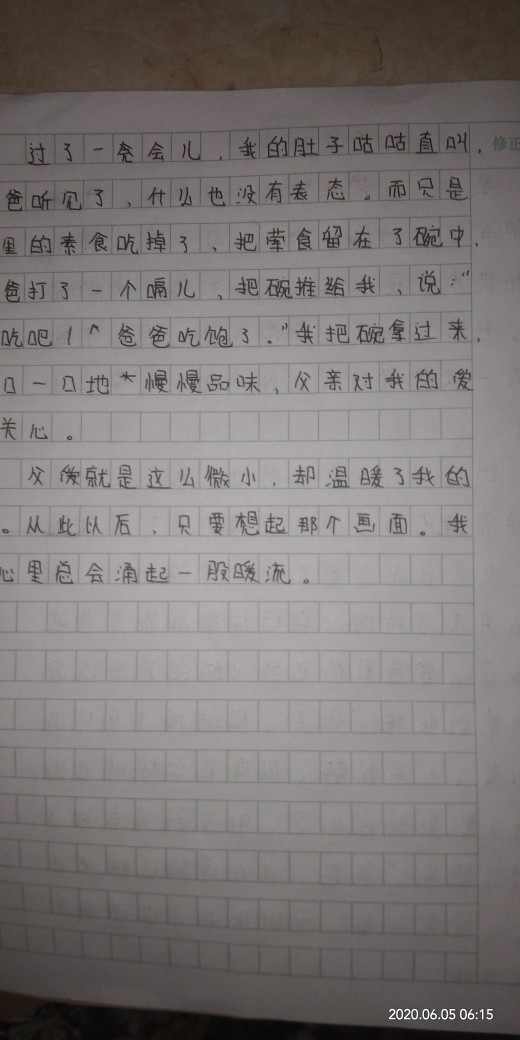 过了一会儿，我的肚子咕咕直叫，
爸听见了，什么也没有表态。而只是
里的素食吃掉了、把荤食留在了碗中，
爸打了一个嗝儿，把碗推给我，说：“
吃吧！^爸爸吃饱了。”我把碗拿过来，
口一口地*慢慢品味，父亲对我的爱
关心。
父爱就是这么微小，却温暖了我的
。从此以后，只要想起那个画面。我
心里总会涌起一股暖流。
修正
2020.06.05 06:15